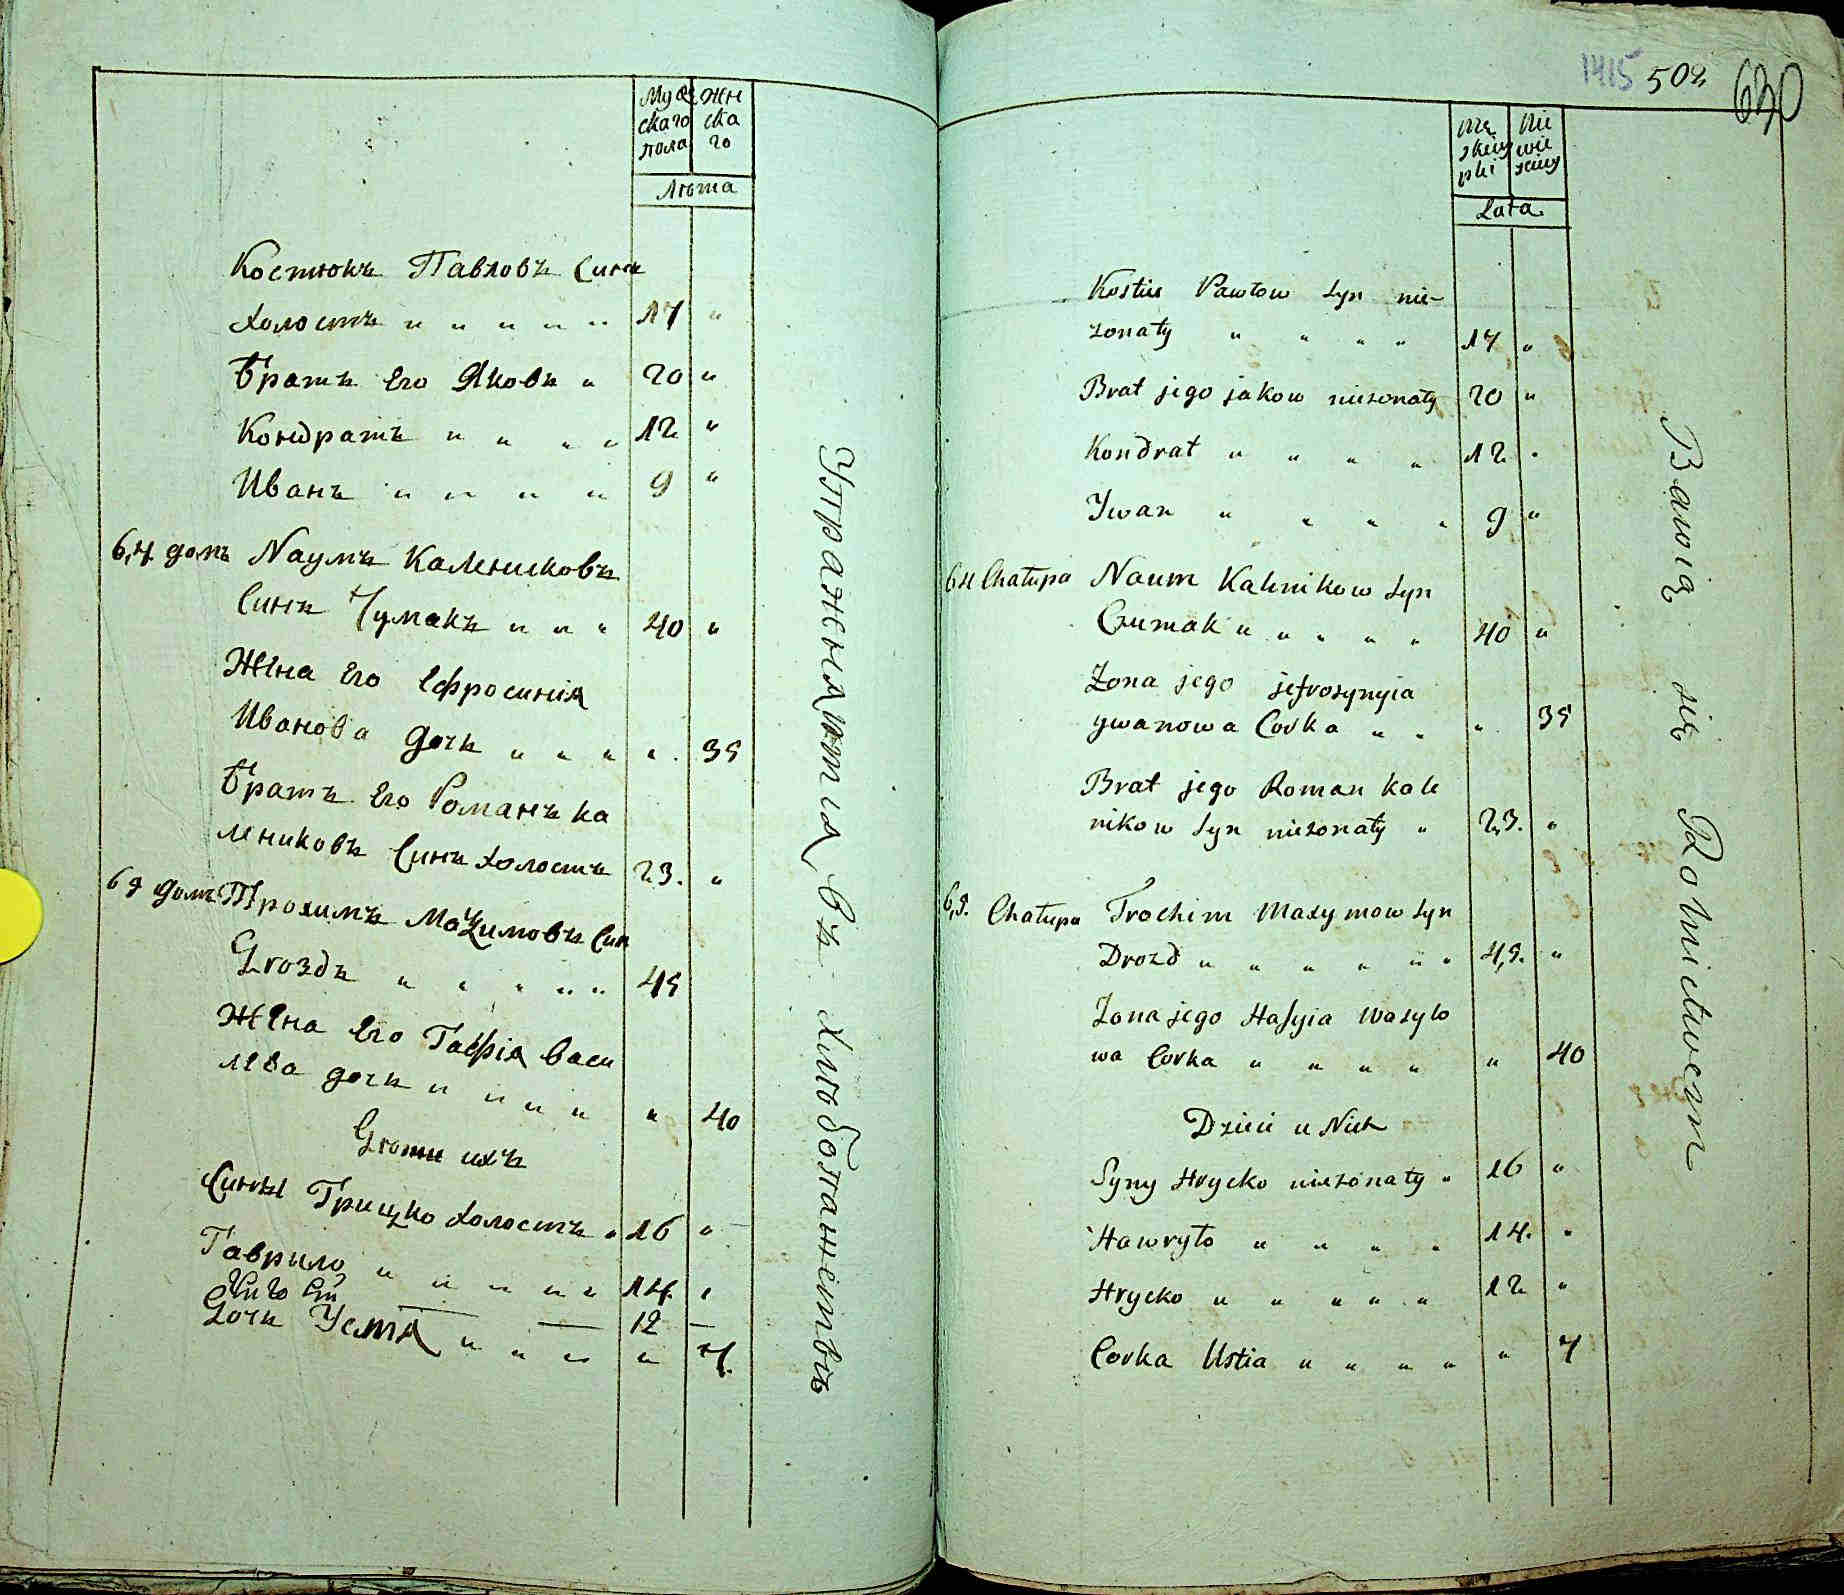 Муж
скаго
пола
жен
ска
го
Лѣта
Костюкъ Павловъ Синъ
Холостъ " " " " " 17 "
Братъ Его Яковъ " 20 "
Кондратъ " " " " 12 "
Иванъ " " " " 9 "
64 домъ Наумъ Калениковъ
Синъ Чумакъ " " " 40 "
Жена Его Ефросинія
Иванова дочь " " " " " 35
Братъ Его Романъ Ка
лениковъ Синъ холостъ 23. "
65 домъ Трохимъ Мазимовъ Син
Дроздъ " " " " " 45
Жена Его Гафія Васи
лева дочь " " " " " 40
Дѣти ихъ
Сины Грицко Холостъ " 16 "
Гаврило " " " " " 14. "
12 —
Дочь Устя " " " " 7.
Упражняются въ хлѣбопажествѣ
1415 502 630
Mę
skiey
płci
Nie
wie
sciey
Lata
Kostiu Pawłow Syn nie-
zonaty " " " " 17 "
Brat jego jakow niezonaty 20 "
Kondrat " " " " 12 "
Ywan " " " " 9 "
64 Chałupa Naum Kalenikow Syn
Czumak " " " " " 40 "
Zona jego jefrosynyia
ywanowa Corka " " " 35
Brat jego Roman Kale
nikow Syn niezonaty " 23. "
65. Chałupa Trochim Maxymow Syn
Drozd " " " " " " 45. "
Zona jego Hafyia Wasylo
wa Corka " " " " " 40
Dzieci u Nich
Syny Hrycko niezonaty " 16 "
Hawryło " " " " 14. "
Hrycko " " " " " 12 "
Corka Ustia " " " " " 7
Bawią się Rolnictwem